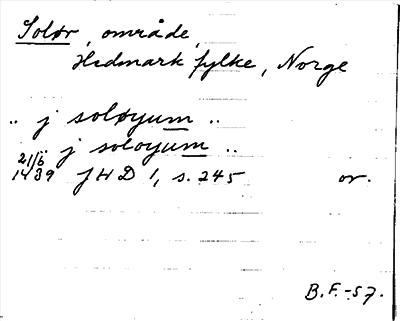 Solør, område,
Hedmark fylke, Norge
.. j soløyum ..
.. j soloyum ..
21/6 1439 JHD 1, s. 245 or.
B.F.-57.